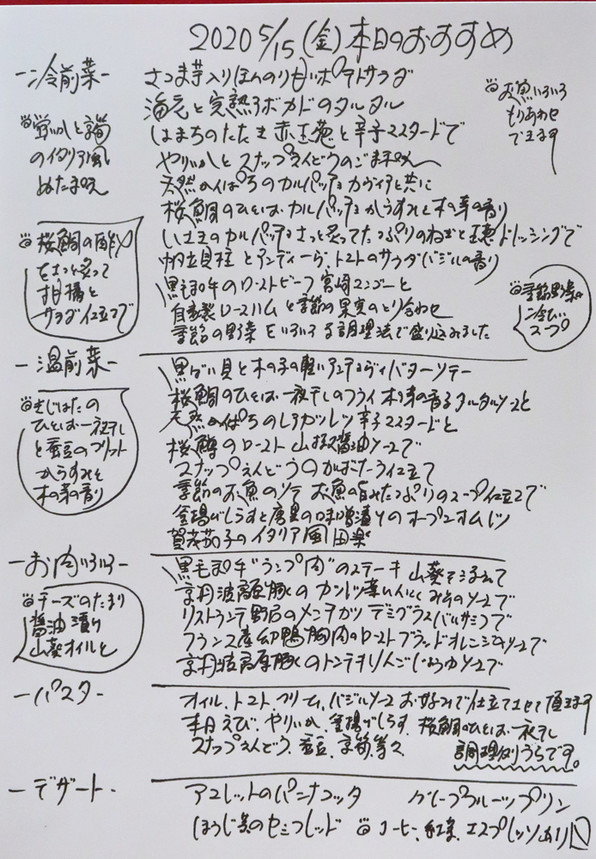 2020 5/15 (金) 本日のおすすめ
-冷前菜-
さつま芋入りほんのり甘いポテトサラダ
海老と完熟アボカドのタルタル
はまちのたたき 赤玉葱と辛子マスタードで
やりいかとスナップえんどうのごま味
天然かんぱちのカルパッチョ キャヴィアと共に
桜鯛のひと塩 カルパッチョ からすみと木の芽の香り
カルパッチョ さっと炙ってたっぷりのねぎと ドレッシングで
帆立貝柱とアンディーヴ、トマトのサラダ バジルの香り
黒毛和牛のローストビーフ 宮崎マンゴーと
自家製ロースハムと季節の果実のとり合わせ
季節の野菜をいろいろな調理法で盛り込みました
お魚いろいろ
もりあわせ
できます
蛍いかと
のイタリア風
ぬた味
桜鯛の酢〆
をさっと炙って
柑橘と
サラダ仕立てで
季節野菜の
冷たい
スープ
-温前菜-
黒バイ貝と木の子の軽い バターソテー
桜鯛のひと塩一夜干しのフライ 木の芽香るタルタルソースと
天然かんぱちのレアカツレツ 辛子マスタードと
桜鱒のロースト 山椒醤油ソースで
スナップえんどうの 仕立て
季節のお魚のソテー お魚の旨みたっぷりのスープ仕立てで
釜揚げしらすと の味噌漬けのオープンオムレツ
賀茂茄子のイタリア風田楽
きじはたの
ひと塩一夜干し
と蚕豆のフリット
からすみと
木の芽の香り
-お肉いろいろ-
黒毛和牛"ランプ肉"のステーキ 山葵を添えて
京丹波高原豚の ソースで
リストランテ野呂のメンチカツ デミグラスバルサミコで
フランス産幼鴨胸肉のロースト ブラッドオレンジのソースで
京丹波高原豚のトンテキ りんごしょうゆソースで
チーズのたまり
醤油漬け
山葵オイルと
-パスタ-
オイル、トマト、クリーム、バジルソース お好みで仕立てさせて頂きます
本日 えび、やりいか、釜揚げしらす、桜鯛のひと塩一夜干し
スナップえんどう、蚕豆、 等々
調理例うらです。
-デザート-
アメレットのパンナコッタ グレープフルーツプリン
ほうじ茶のセミフレッド コーヒー、紅茶、エスプレッソあり